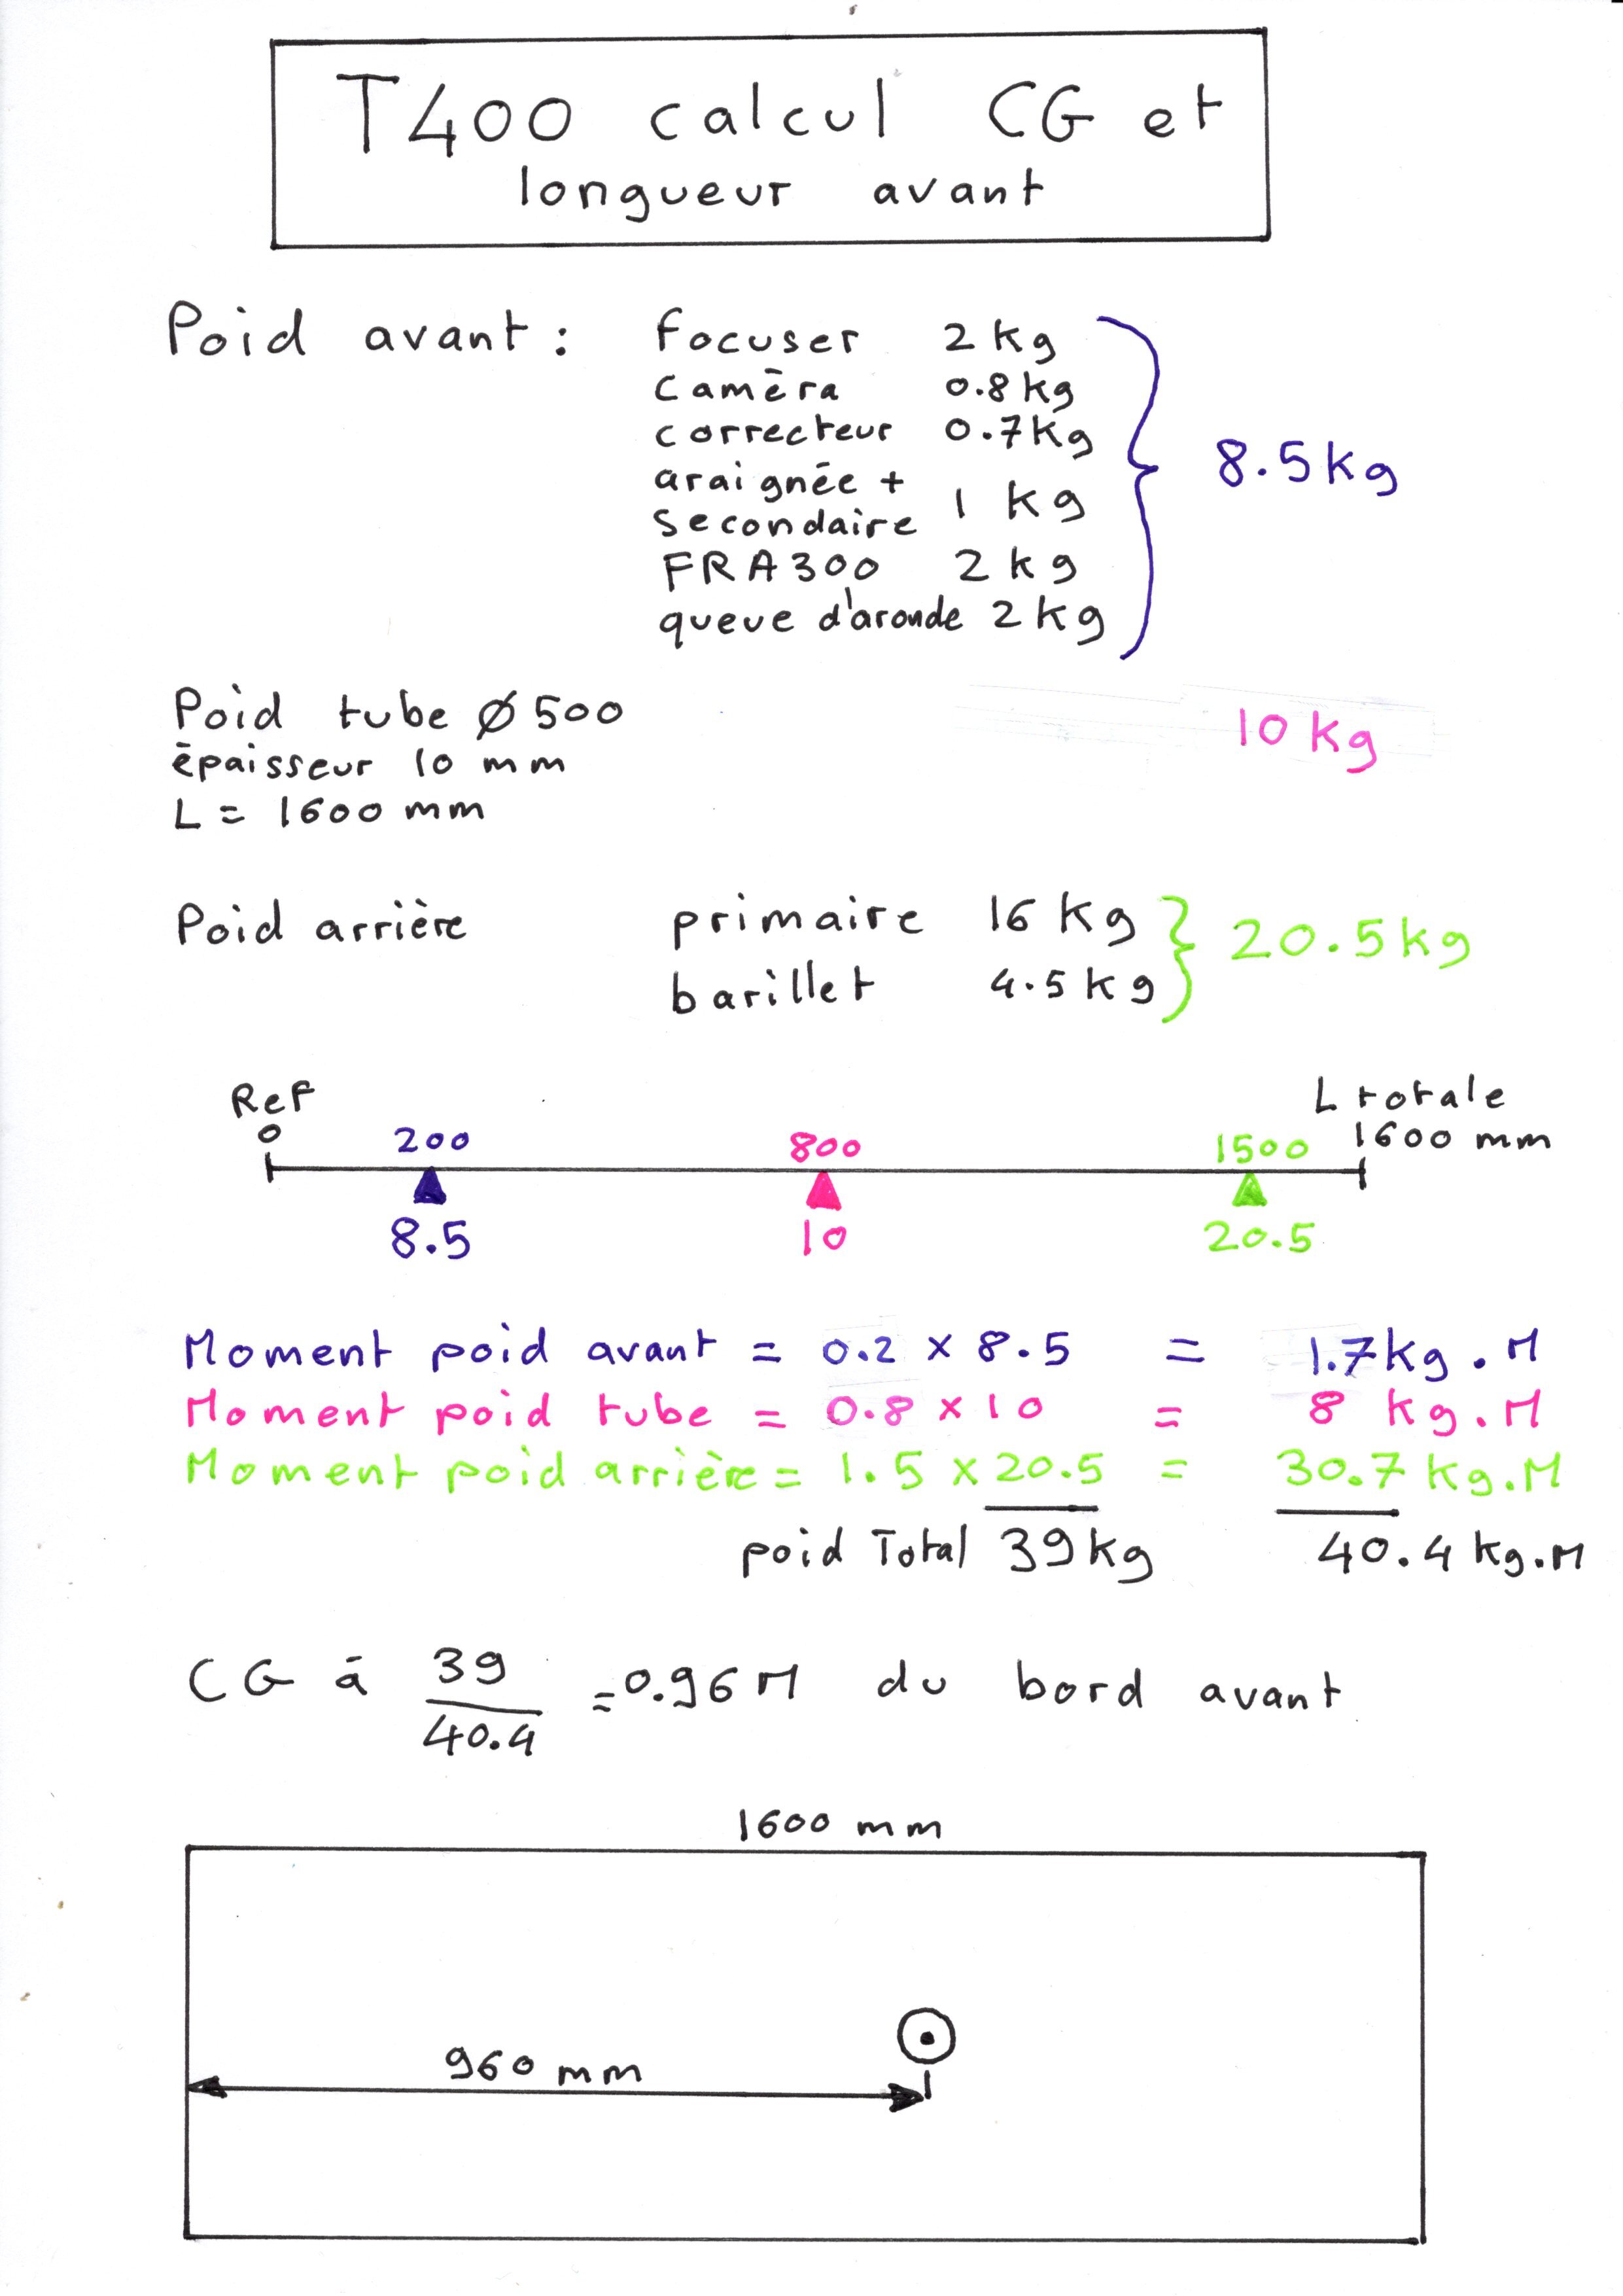 T400 calcul CG et
longueur avant
Poid avant : focuser 2 kg
camèra 0.8 kg
correcteur 0.7 kg
araignée +
secondaire 1 kg
FRA300 2 kg
queue d'aronde 2 kg
8.5 kg
Poid tube Ø 500
épaisseur 10 mm
L = 1600 mm
10 kg
Poid arrière primaire 16 kg
barillet 4.5 kg
20.5 kg
Ref L totale
0 200 800 1500 1600 mm
8.5 10 20.5
Moment poid avant = 0.2 x 8.5 = 1.7 kg.M
Moment poid tube = 0.8 x 10 = 8 kg.M
Moment poid arrière = 1.5 x 20.5 = 30.7 kg.M
poid Total 39 kg 40.4 kg.M
CG à 39/40.4 = 0.96 M du bord avant
1600 mm
960 mm